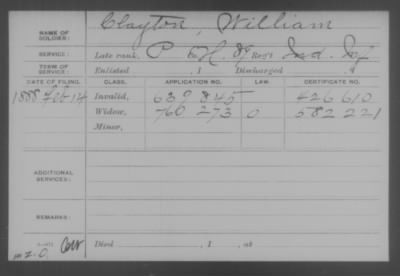 Clayton, William
NAME OF SOLDIER:
SERVICE: Late rank, P Co. H, 89 Reg't Ind. Inf
TERM OF SERVICE: Enlisted , 1 Discharged , 1
DATE OF FILING. CLASS. APPLICATION NO. LAW. CERTIFICATE NO.
1888 Feb 14 Invalid, 639 845 426 610
Widow, 760 273 0 582 221
Minor,
ADDITIONAL SERVICES:
REMARKS:
Died , 1 , at